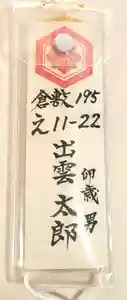 倉敷195
え11-22
出雲太郎
卯歳男